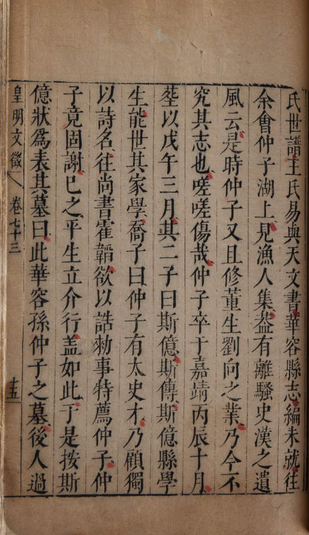 氏世譜王氏易與天文書華容縣志編未就往
余會仲子湖上見漁人集葢有離騷史漢之遺
風云是時仲子又且修董生劉向之業乃今不
究其志也嗟嗟傷哉仲子卒于嘉靖丙辰十月
塟以戊午三月其二子曰斯億斯傳斯億縣學
生能世其家學喬子曰仲子有太史才乃顧獨
以詩名徃尚書霍韜欲以誥勑事特薦仲子仲
子竟固謝已之平生立介行盖如此于是按斯
億狀爲表其墓曰此華容孫仲子之墓後人過
皇明文徵 卷七十三 十五